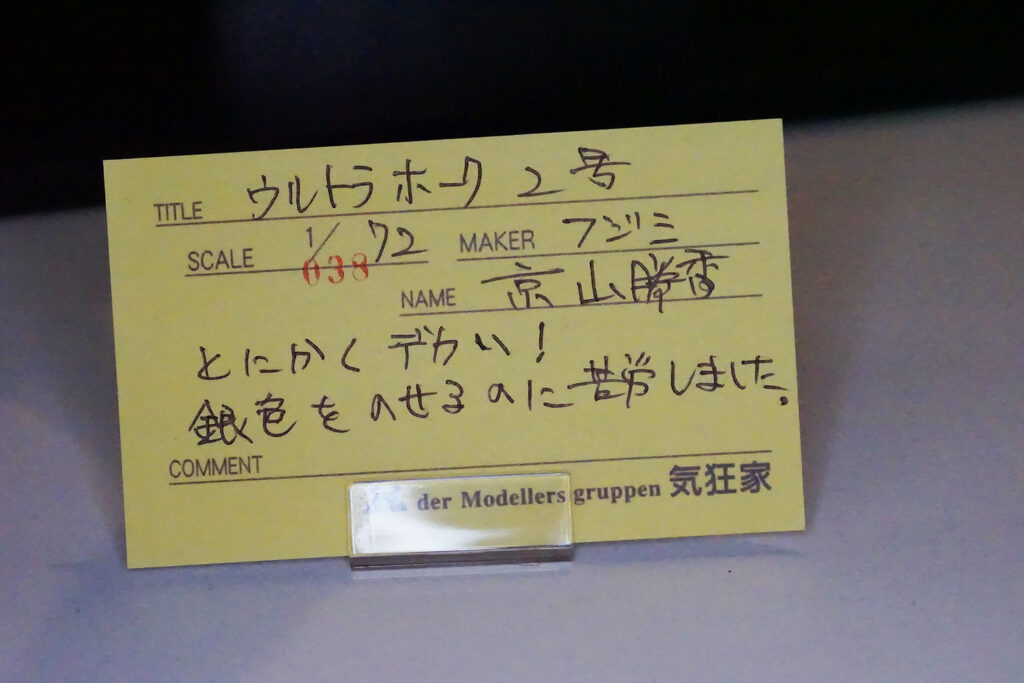 TITLE ウルトラホーク 2号
SCALE 1/72 MAKER フジミ
038
NAME 京山勝香
とにかく デカい!
銀色をのせるのに苦労しました。
COMMENT
der Modellers gruppen 気狂家